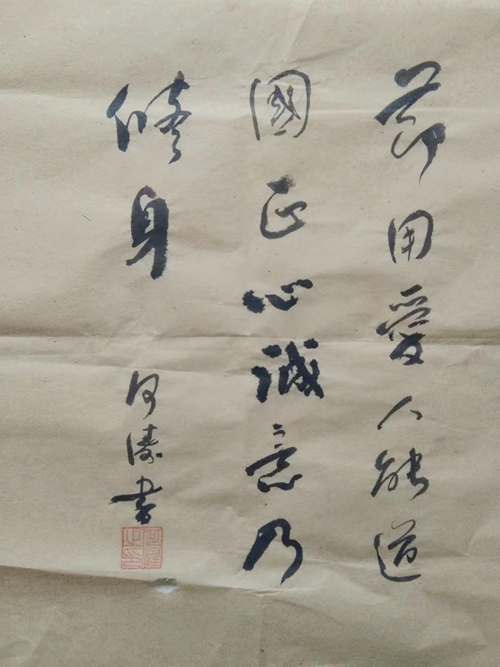 節用愛人能道
國正心誠意乃
修身
何濤書